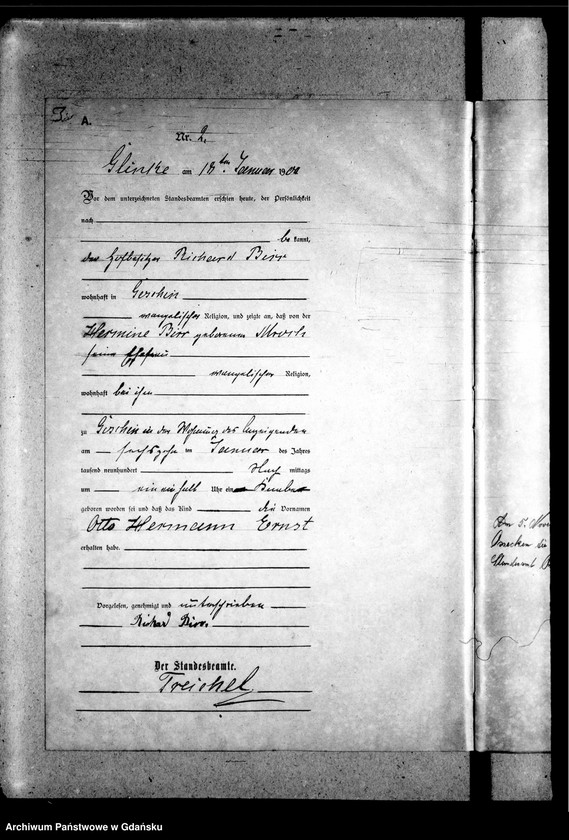 A.
Nr. 2.
Glinke am 18ten Januar 1900
Vor dem unterzeichneten Standesbeamten erschien heute, der Persönlichkeit
nach
be kannt,
der Hofbesitzer Richard Birr
wohnhaft in Goschin
evangelischer Religion, und zeigte an, daß von der
Hermine Birr geborenen
seiner Ehefrau
evangelischer Religion,
wohnhaft bei ihm
zu Goschin in der Wohnung des Anzeigenden
am sechszehn ten Januar des Jahres
tausend neunhundert Nach mittags
um ein ein halb Uhr ein Knabe
geboren worden sei und daß das Kind die Vornamen
Otto Hermann Ernst
erhalten habe.
Vorgelesen, genehmigt und unterschrieben
Richard Birr.
Der Standesbeamte.
Treichel
Am 5. Nov
Archiwum Państwowe w Gdańsku